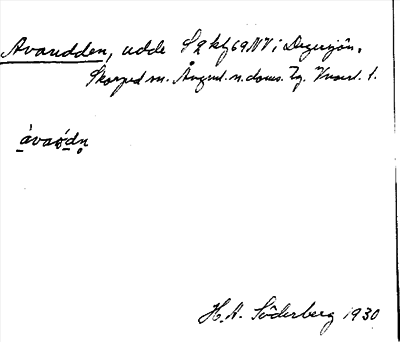 Avaudden, udde S 2 kf 69 NV i Degersjön.
Skorped sn. Ångml. n. doms. Tg. Kvart. 1.
ávaódn
H. A. Söderberg 1930